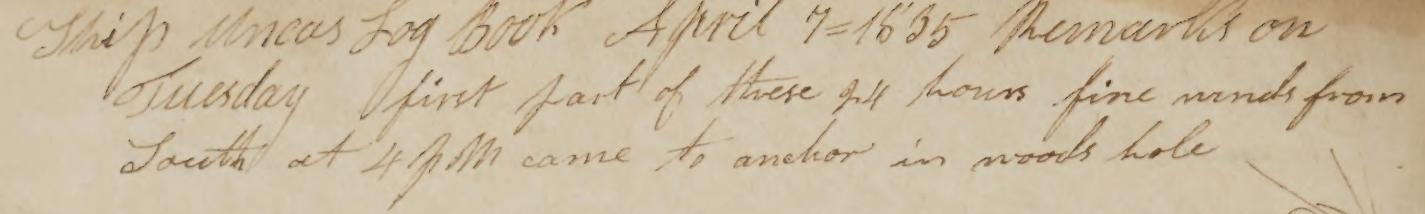 Ship Uncas Log Book April 7=1835 Remarks on
Tuesday first part of these 24 hours fine winds from
South at 4 PM came to anchor in woods hole